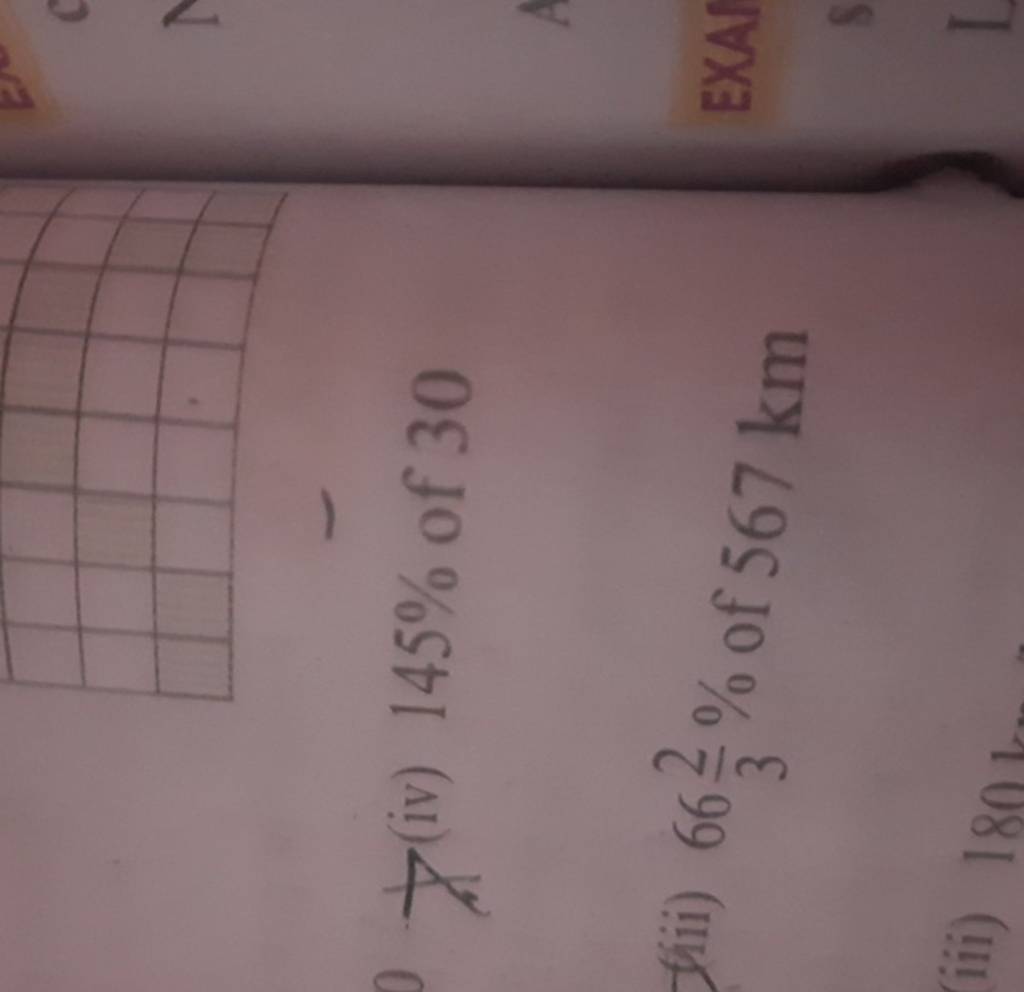 (iv) 145% of 30
(iii) 66 2/3 % of 567 km
(iii) 180